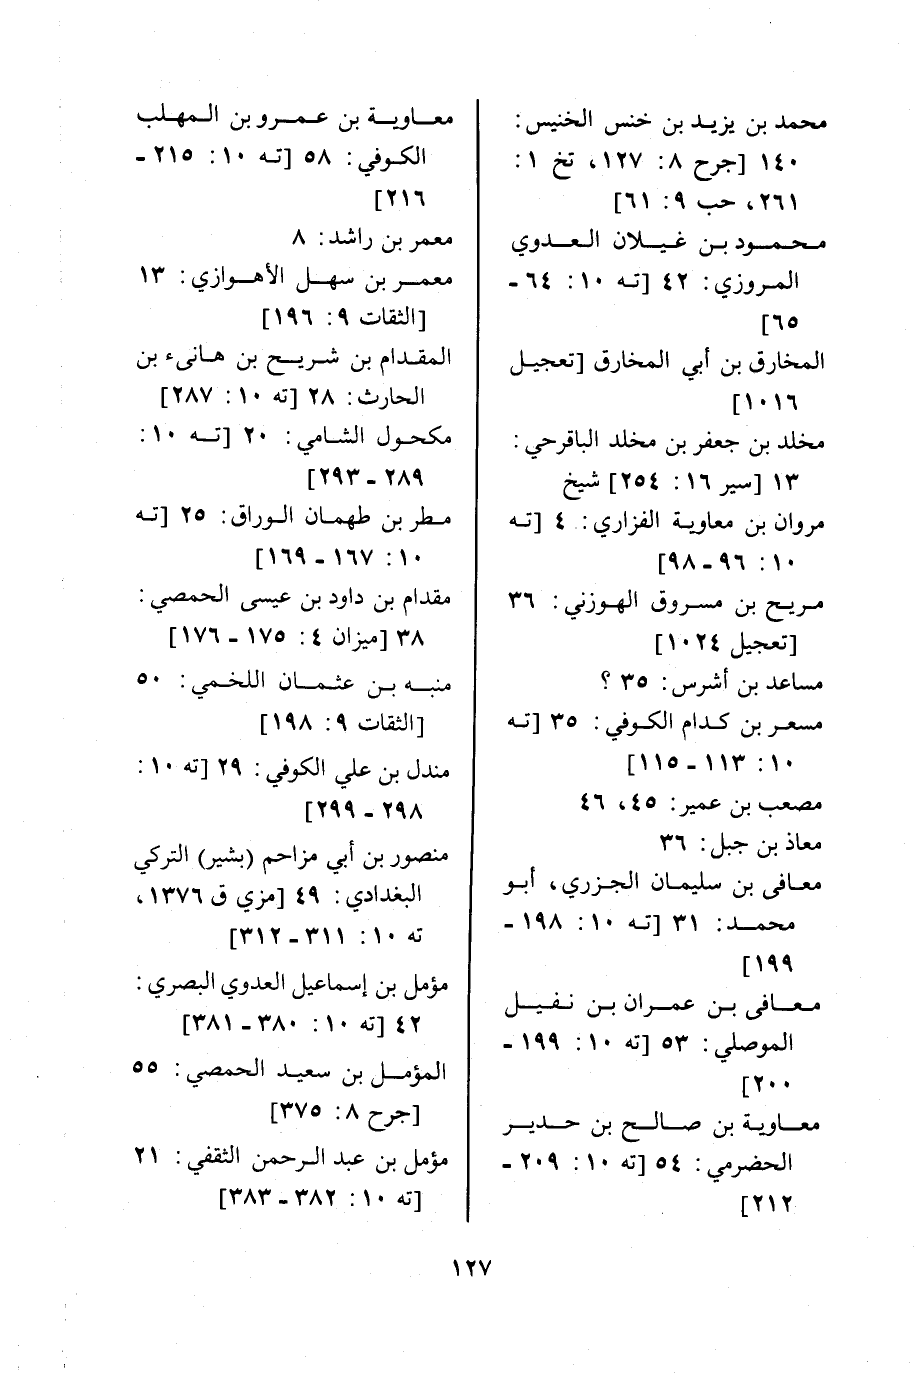 محمد بن يزيد بن خنس الخنيس:
١٤٠ [جرح ٨: ١٢٧، تخ ١:
٢٦١، حب ٩: ٦١]
محمود بن غيلان العدوي
المروزي: ٤٢ [ته ١٠: ٦٤ -
٦٥]
المخارق بن أبي المخارق [تعجيل
١٠١٦]
مخلد بن جعفر بن مخلد الباقرحي:
١٣ [سير ١٦: ٢٥٤] شيخ
مروان بن معاوية الفزاري: ٤ [ته
١٠: ٩٦ - ٩٨]
مريح بن مسروق الهوزني: ٣٦
[تعجيل ١٠٢٤]
مساعد بن أشرس: ٣٥ ؟
مسعر بن كدام الكوفي: ٣٥ [ته
١٠: ١١٣ - ١١٥]
مصعب بن عمير: ٤٥، ٤٦
معاذ بن جبل: ٣٦
معافى بن سليمان الجزري، أبو
محمد: ٣١ [ته ١٠: ١٩٨ -
١٩٩]
معافى بن عمران بن نفيل
الموصلي: ٥٣ [ته ١٠: ١٩٩ -
٢٠٠]
معاوية بن صالح بن حدير
الحضرمي: ٥٤ [ته ١٠: ٢٠٩ -
٢١٢]
معاوية بن عمرو بن المهلب
الكوفي: ٥٨ [ته ١٠: ٢١٥ -
٢١٦]
معمر بن راشد: ٨
معمر بن سهل الأهوازي: ١٣
[الثقات ٩: ١٩٦]
المقدام بن شريح بن هانىء بن
الحارث: ٢٨ [ته ١٠: ٢٨٧]
مكحول الشامي: ٢٠ [ته ١٠:
٢٨٩ - ٢٩٣]
مطر بن طهمان الوراق: ٢٥ [ته
١٠: ١٦٧ - ١٦٩]
مقدام بن داود بن عيسى الحمصي:
٣٨ [ميزان ٤: ١٧٥ - ١٧٦]
منبه بن عثمان اللخمي: ٥٠
[الثقات ٩: ١٩٨]
مندل بن علي الكوفي: ٢٩ [ته ١٠:
٢٩٨ - ٢٩٩]
منصور بن أبي مزاحم (بشير) التركي
البغدادي: ٤٩ [مزي ق ١٣٧٦،
ته ١٠: ٣١١ - ٣١٢]
مؤمل بن إسماعيل العدوي البصري:
٤٢ [ته ١٠: ٣٨٠ - ٣٨١]
المؤمل بن سعيد الحمصي: ٥٥
[جرح ٨: ٣٧٥]
مؤمل بن عبد الرحمن الثقفي: ٢١
[ته ١٠: ٣٨٢ - ٣٨٣]
١٢٧